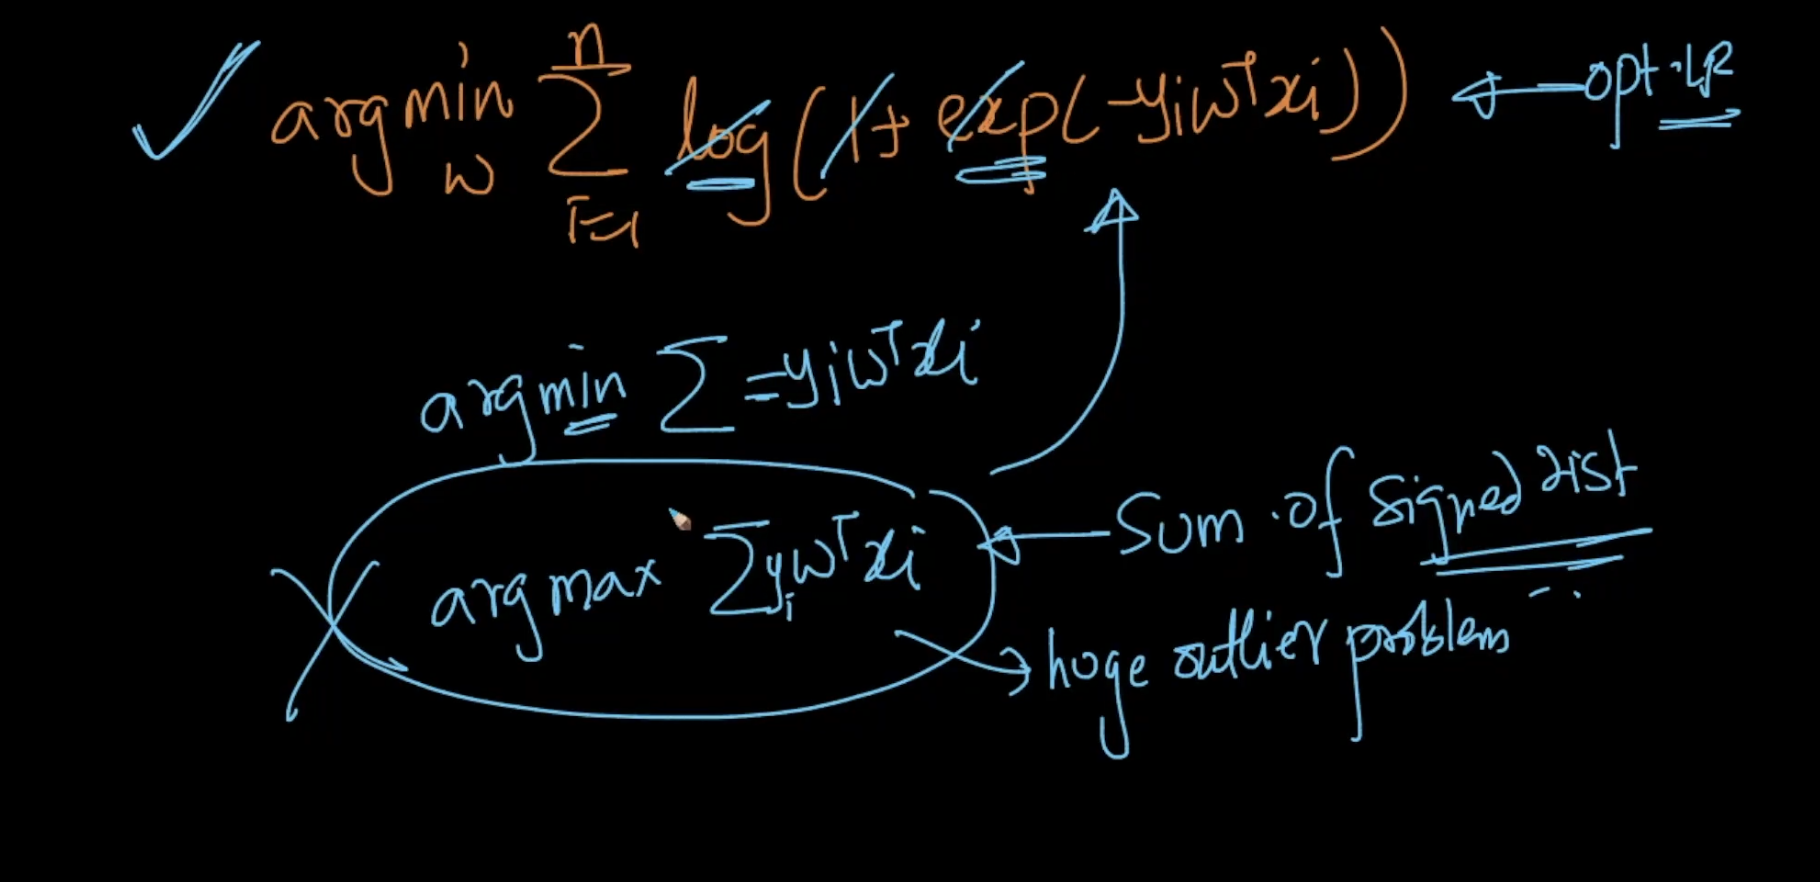 argmin_w Σ_{i=1}^{n} log(1+ exp(-yiwᵀxi)) ← opt.LR
argmin Σ -yiwᵀxi
argmax Σyiwᵀxi ← Sum of Signed dist
→ huge outlier problem